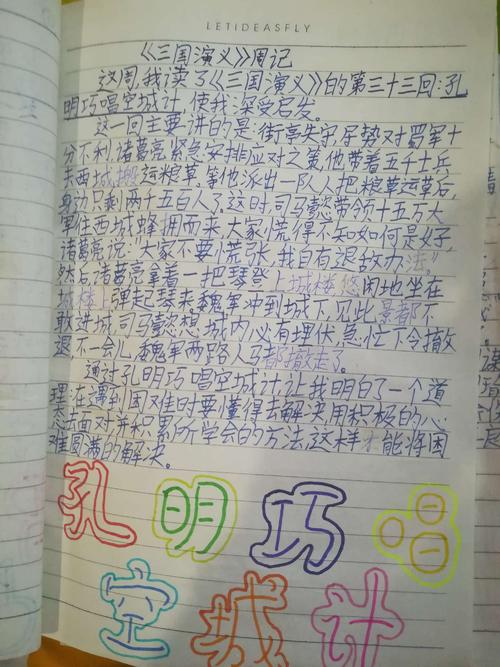 LETIDEASFLY
《三国演义》周记
这周,我读了《三国演义》的第三十三回:孔
明巧唱空城计,使我深受启发。
这一回主要讲的是:街亭失守,尽势对蜀军十
分不利,诸葛亮紧急安排应对之策,他带着五千士兵
去西城搬运粮草。等他派出一队人把粮草运草后,
身边只剩两千五百人了。这时,司马懿带领十五万大
军往西城蜂拥而来,大家慌得不知如何是好,
诸葛亮说:"大家不要慌张,我自有退敌办法。"
然后,诸葛亮拿着一把琴登上城楼,悠闲地坐在
城楼上弹起琴来,魏军冲到城下,见此景都不
敢进城,司马懿想,城内必有埋伏,急忙下令撤
退,不一会儿,魏军两路人马都撤走了。
通过孔明巧唱空城计让我明白了一个道
理:在遇到困难时要懂得去解决,用积极的心
态去面对并积累所学会的方法,这样才能将困
难圆满的解决。
孔明巧唱
空城计